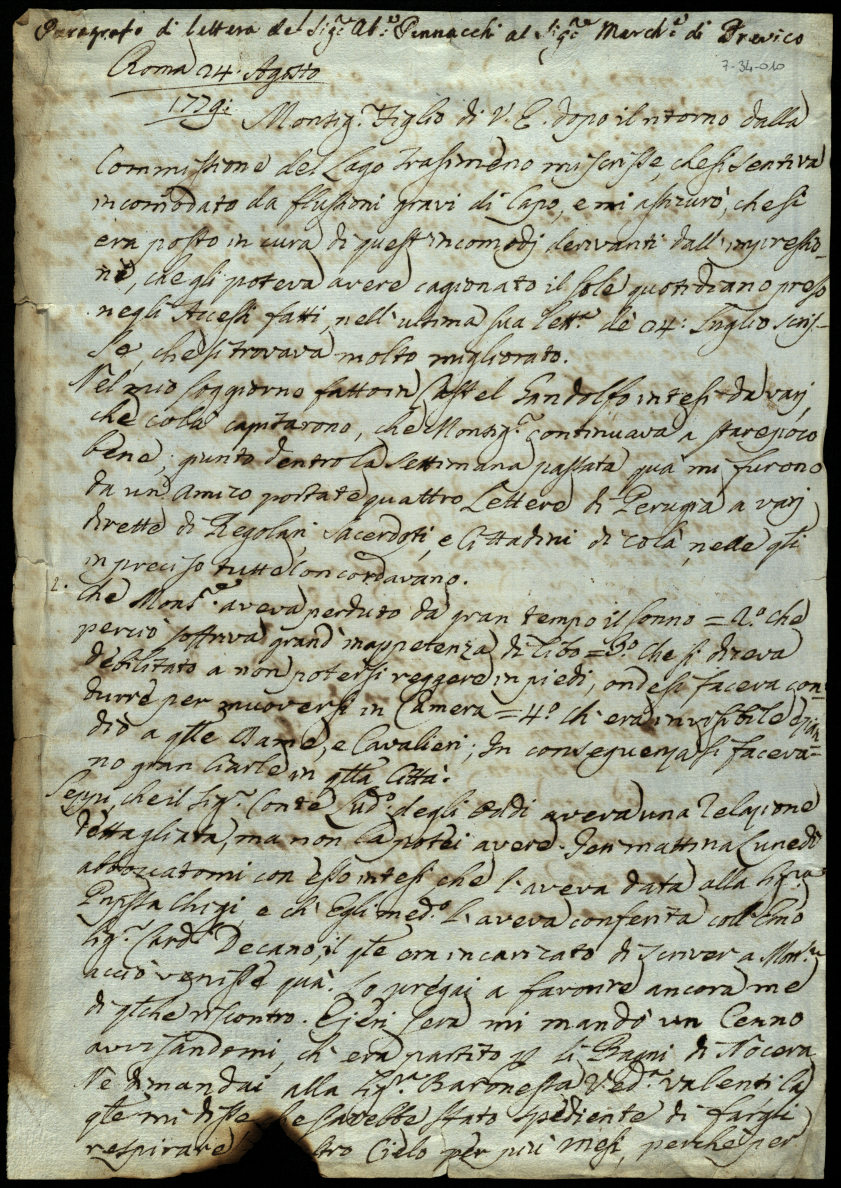 Paragrafo di lettera del Sigr. Abe. Pennacchi al Sigre. Marche. di Trevico
7-34-010
Roma 24. Agosto
1779:
Monsigr. Figlio di V. E. dopo il ritorno dalla
Commissione del Lago Trasimeno mi scrisse che si sentiva
incomodato da flussioni gravi di Capo, e mi assicurò, che si
era posto in cura di quest'incomodi derivanti dall'impressio-
ni, che gli poteva avere cagionato il Sole quotidiano preso
negli Accessi fatti, nell'ultima sua lettª. de 04: Luglio scris-
se, che si trovava molto migliorato.
Nel mio soggiorno fatto in Castel Gandolfo intesi da varj,
che colà capitarono, che Monsigr. continuava a star poco
bene; giunto dentro la settimana passata quà mi furono
da un Amico portate quattro Lettere di Perugia a varj
dirette di Regolari, Sacerdoti, e Cittadini di colà, nelle qli
in preciso tutte concordavano.
che Monsre. aveva perduto da gran tempo il sonno = 2º. che
perciò soffriva grand'inappetenza di Cibo = 3º. che si diceva
debilitato a non potersi reggere in piedi, onde si faceva con-
durre per muoversi in Camera = 4º. ch'era invisibile
a qlle Dame, e Cavalieri; In conseguenza si faceva-
no gran Ciarle in qlla Città.
Seppi, che il Sigr. Conte Ludº. degli Oddi aveva una Relazione
dettagliata, ma non la potei avere. Jeri mattina Lunedì
abboccatomi con esso intesi che l'aveva data alla Sigra.
Pnpssa Chigi, e ch'Egli medº. l'aveva conferita coll'Emo
Sigr. Cardl. Decano, il qle era incaricato di scriver a Monsre.
acciò venisse quà. Lo pregai a favorire ancora me
di qlche riscontro. E jeri sera mi mandò un Cenno
avvisandomi, ch'era partito p li Bagni di Nocera
Ne dimandai alla Sigra. Baronessa Vedª. Valenti la
qle mi disse sarebbe stato spediente di fargli
respirare Cielo per più mesi, perché per